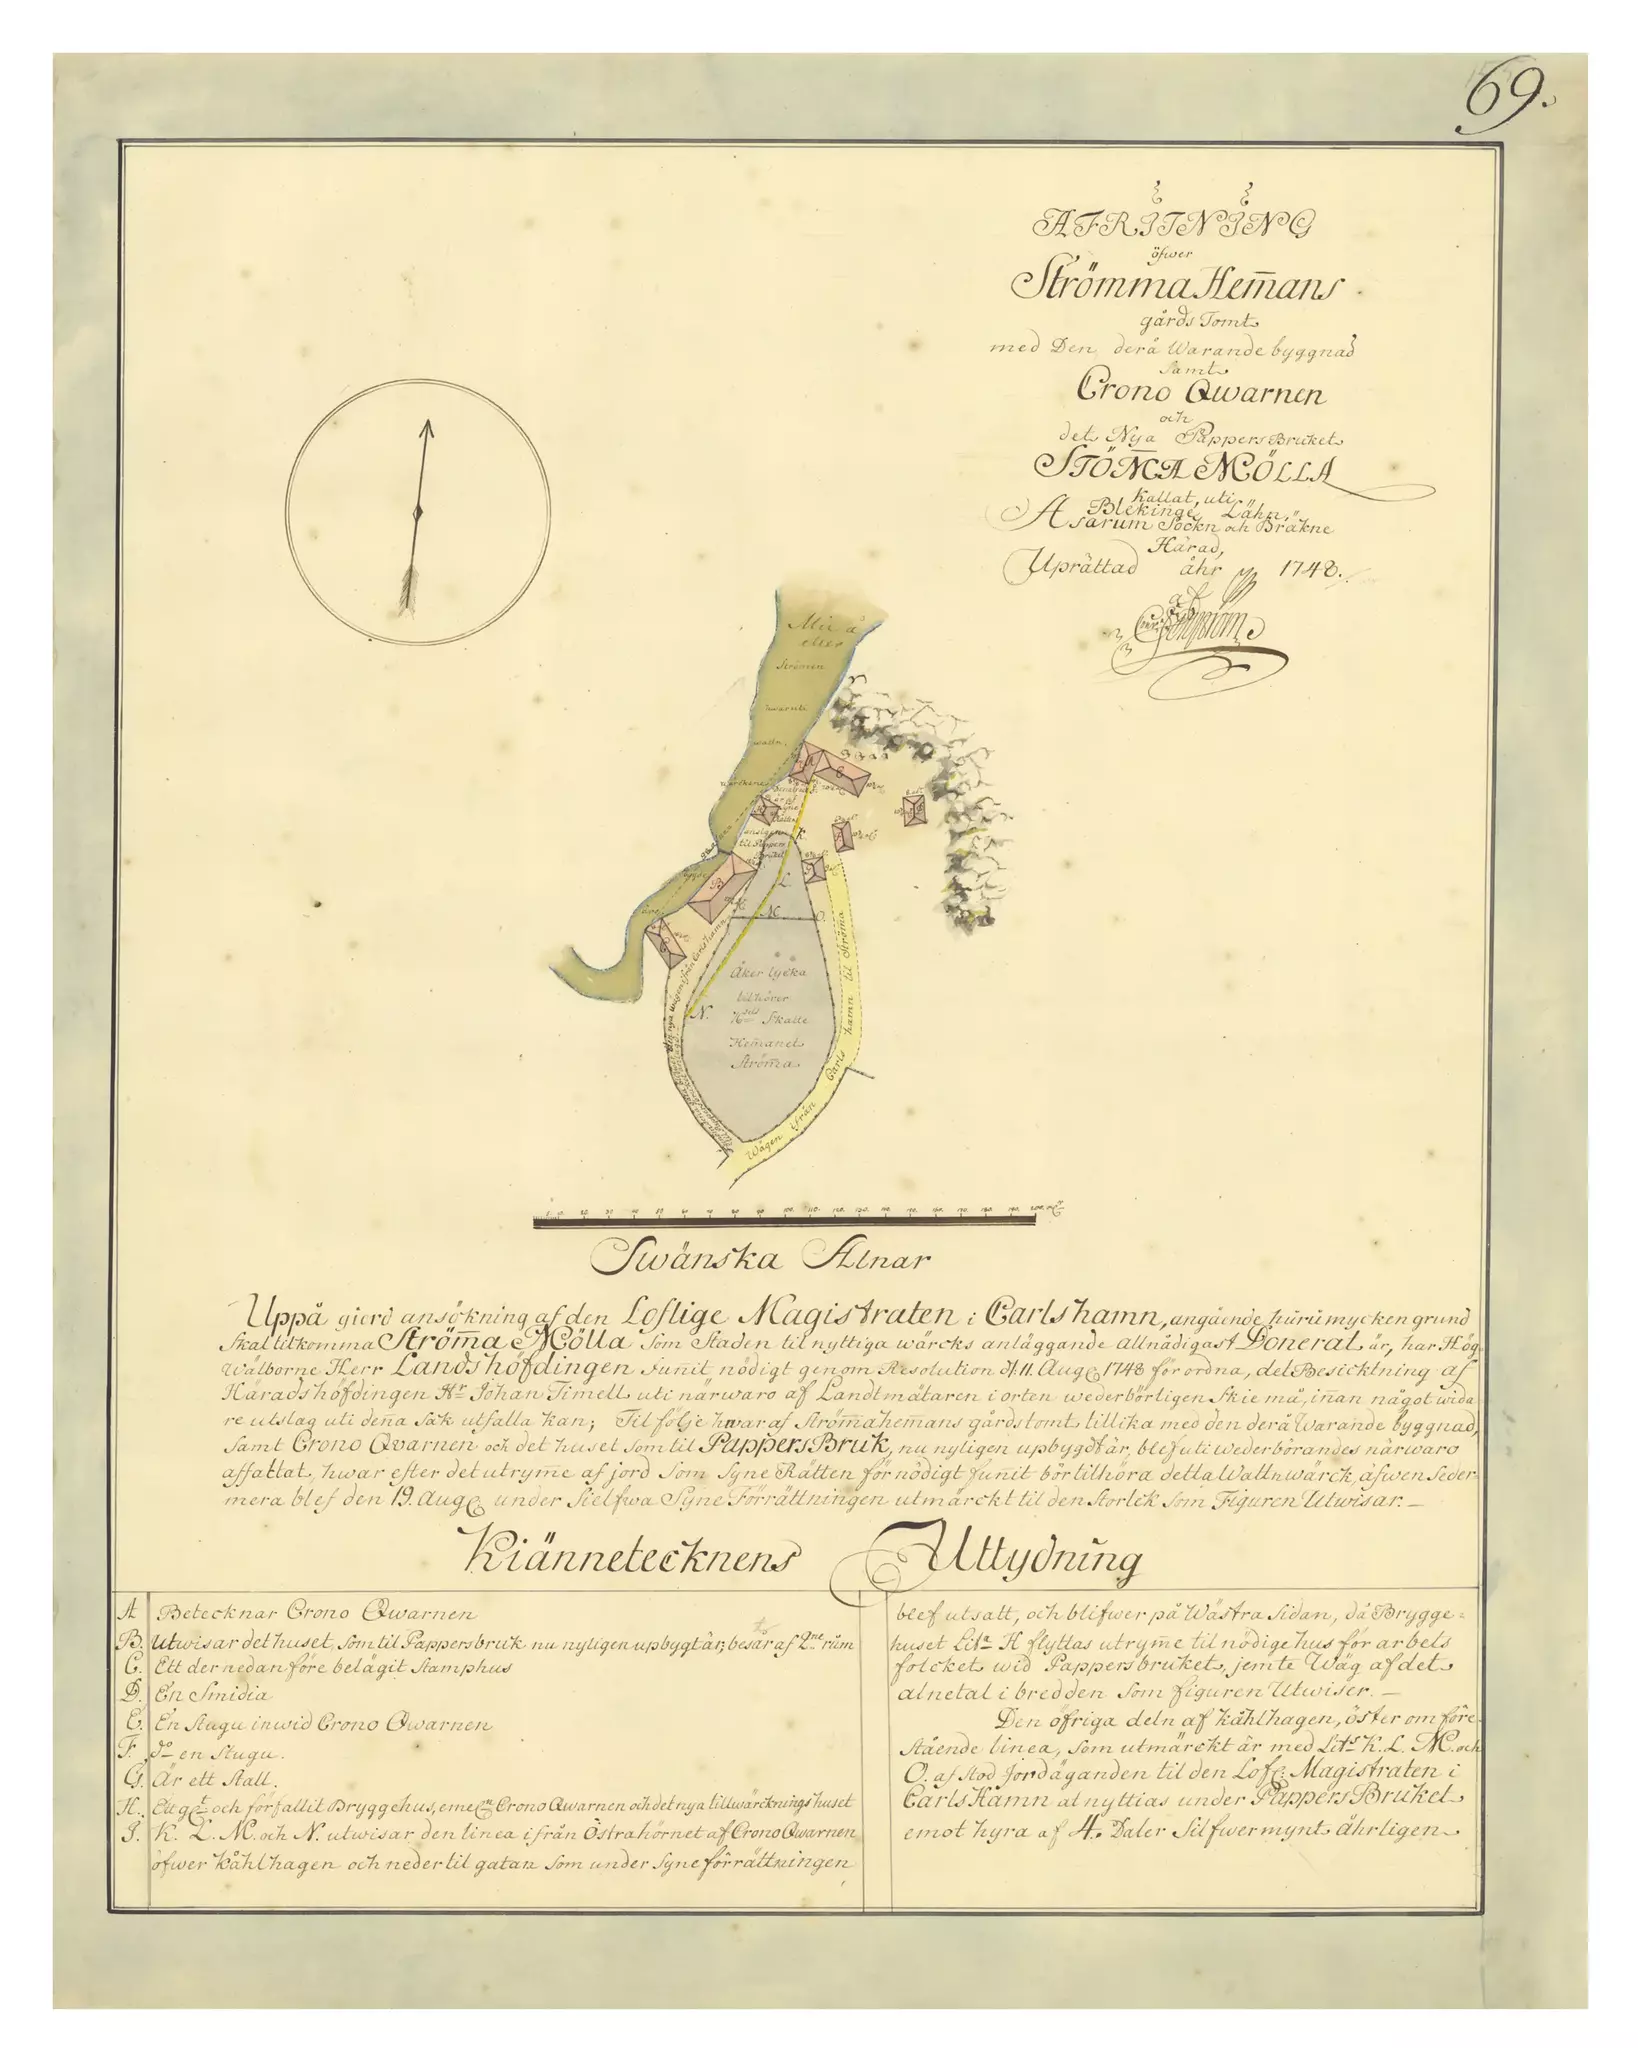 69.
AFRITNING
öfwer
Strömma Hem̄ans
gårds Tomt
med Den derå Warande byggnad
samt
Crono Qwarnen
och
det Nya Pappers Bruket
STÖM̄A MÖLLA
Kallat, uti
Blekinge Lähn,
Asarum Sockn och Bräkne
Härad,
Uprättad åhr 1748.
Mie å
eller
Strömen
hwaruti
wattn
wärckene
A
E
H
F
G
D
B
C
K.
L.
M.
O.
N.
til Pappers
Bruket
Åker lycka
tilhörer
Skatte
Hem̄anet
Ström̄a
den nya wägen ifrån Carlshamn
Wägen ifrån Carls hamn til Ström̄a
Swänska Alnar
Uppå giord ansökning af den Loflige Magistraten i Carlshamn, angående huru mycken grund
skal tilkomma Ström̄a Mölla som Staden til nyttiga wärcks anläggande allnådigast Donerat är, har Hög
Wälborne Herr Landshöfdingen funnit nödigt genom Resolution d. 11. Aug 1748 förordna, det Besicktning af
Häradshöfdingen Hr Johan Timell uti närwaro af Landtmätaren i orten wederbörligen Skie må, in̄an något wida
re utslag uti den̄a sak utfalla kan; Til följe hwaraf Ström̄a hem̄ans gårds tomt tillika med den derå Warande byggnad,
samt Crono Qvarnen och det huset som til PappersBruk, nu nyligen upbygdt är, blef uti wederbörandes närwaro
affattat, hwar efter det utrym̄e af jord som Syne Rätten för nödigt fun̄it bör tilhöra detta Wattnwärck, äfwen seder-
mera blef den 19. Aug under Sielfwa Syne Förrättningen utmärckt til den Storlek som Figuren Utwisar.—
Kiännetecknens Uttydning
A Betecknar Crono Qwarnen
B. Utwisar det huset, som til Pappersbruk nu nyligen upbygt är; består af 2ne rum
C. Ett der nedanföre belägit Stamphus
D. En Smidia
E. En Stugu inwid Crono Qwarnen
F. do en Stugu.
G. Är ett Stall.
H. Ett g:t och förfallit Bryggehus, emellan Crono Qwarnen och det nya tillwärcknings huset
J. K. L. M. och N. utwisar den linea ifrån Östra hörnet af Crono Qwarnen
öfwer kåhlhagen och neder til gatan som under Syneförrättningen
blef utsatt, och blifwer på Wästra Sidan, då Brygge-
huset Lit:a H flyttas utrym̄e til nödige hus för arbets
folcket wid Pappersbruket, jemte Wäg af det
alnetal i bredden som figuren Utwiser.—
Den öfriga deln af kåhlhagen, öster om före-
stående linea, som utmärckt är med Litr K. L. M. och
O. af stod Jordäganden til den Lofl: Magistraten i
CarlsHamn at nyttias under PappersBruket
emot hyra af 4. Daler Silfwermynt åhrligen